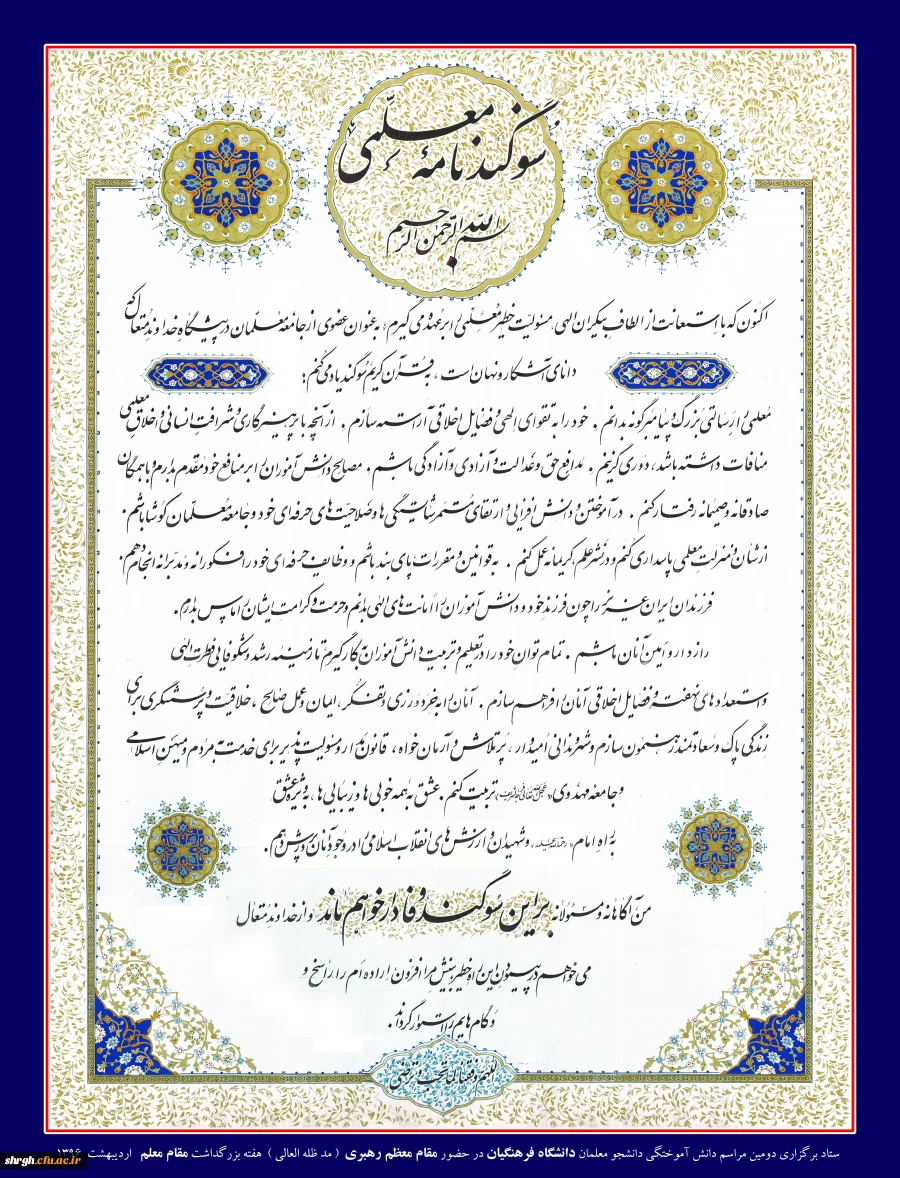 سوگندنامهٔ معلّمی
بسم الله الرحمن الرحیم
اکنون که با استعانت از الطاف بیکران الهی، مسئولیت خطیر معلّمی را برعهده می گیرم؛ به عنوان عضوی از جامعه معلّمان در پیشگاه خداوند متعال که
دانای آشکار و نهان است، به قرآن کریم سوگند یاد می کنم:
معلمی را رسالتی بزرگ و پیامبرگونه بدانم. خود را به تقوای الهی و فضایل اخلاقی آراسته سازم. از آنچه با پرهیزگاری و شرافت انسانی و اخلاق معلمی
منافات داشته باشد، دوری گزینم. مدافع حق و عدالت و آزادی و آزادگی باشم. مصالح دانش آموزان را بر منافع خود مقدم بدارم و با همگان
صادقانه و صمیمانه رفتار کنم. در آموختن و دانش افزایی و ارتقای مستمر شایستگی ها و صلاحیت های حرفه ای خود و جامعه معلمان کوشا باشم.
از شأن و منزلت معلمی پاسداری کنم و در نشر علم، کریمانه عمل کنم. به قوانین و مقررات پای بند باشم و وظایف حرفه ای خود را فکورانه و مدبرانه انجام دهم.
فرزندان ایران عزیز را چون فرزند خود و دانش آموزان را امانت های الهی بدانم و حرمت و کرامت ایشان را پاس بدارم.
رازدار و امین آنان باشم. تمام توان خود را در تعلیم و تربیت دانش آموزان به کار گیرم تا زمینه رشد و شکوفایی فطرت الهی
و استعدادهای نهفته و فضایل اخلاقی آنان را فراهم سازم. آنان را به خردورزی و تفکر، ایمان و عمل صالح، خلاقیت و پرسشگری برای
زندگی پاک و سعادتمند رهنمون سازم و شهروندانی امیدوار، پرتلاش و آرمان خواه، قانون مدار و مسئولیت پذیر برای خدمت به مردم و میهن اسلامی
و جامعه مهدوی تربیت کنم. عشق به همه خوبی ها و زیبایی ها، به ویژه عشق
به راه امام و شهیدان و ارزش های انقلاب اسلامی را در وجود آنان پرورش دهم.
من آگاهانه و مسئولانه بر این سوگند وفادار خواهم ماند و از خداوند متعال
می خواهم در پیمودن این راه خطیر بینش مرا افزون، اراده ام را راسخ و
و گام هایم را استوار گرداند.
اللهم وفقنا لما تحب و ترضی
ستاد برگزاری دومین مراسم دانش آموختگی دانشجو معلمان دانشگاه فرهنگیان در حضور مقام معظم رهبری ( مد ظله العالی ) هفته بزرگداشت مقام معلم اردیبهشت
shrgh.cfu.ac.ir